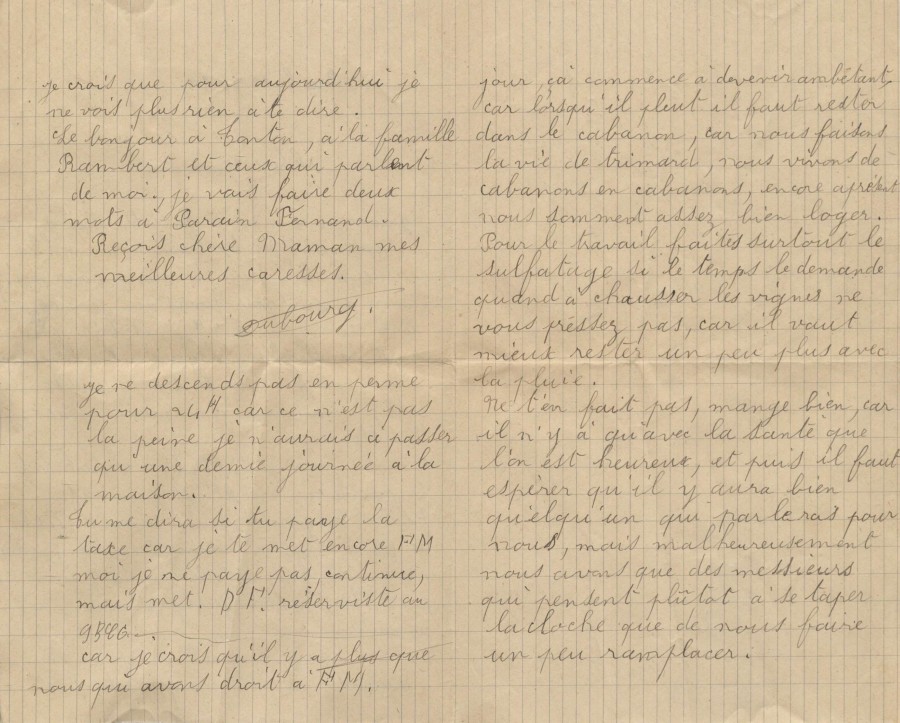 je crois que pour aujourd'hui je
ne vois plus rien à te dire.
Le bonjour à Tonton, à la famille
Rambert et ceux qui parlent
de moi, je vais faire deux
mots à Parain Fernand.
Reçois chère Maman mes
meilleures caresses.
Dubourg.
je ne descends pas en perme
pour 24H car ce n'est pas
la peine je n'aurais a passer
qu'une demie journée à la
maison.
Tu me dira si tu paye la
taxe car je te met encore FM
moi je ne paye pas, continue,
mais met. D F. réserviste au
car je crois qu'il y a plus que
nous qui avons droit à FM.
jour, çà commence à devenir ambêtant,
car lorsqu'il pleut il faut rester
dans le cabanon, car nous faisons
la vie de trimard, nous vivons de
cabanons en cabanons, encore aprésent
nous somment assez bien loger.
Pour le travail faites surtout le
sulfatage si le temps le demande
quand à chausser les vignes ne
vous préssez pas, car il vaut
mieux rester un peu plus avec
la pluie.
Ne t'en fait pas, mange bien, car
il n'y à qu'avec la santé que
l'on est heureux, et puis il faut
espérer qu'il y aura bien
quelqu'un qui parleras pour
nous, mais malheureusement
nous avons que des messieurs
qui pensent plûtot à se taper
la cloche que de nous faire
un peu ramplacer.